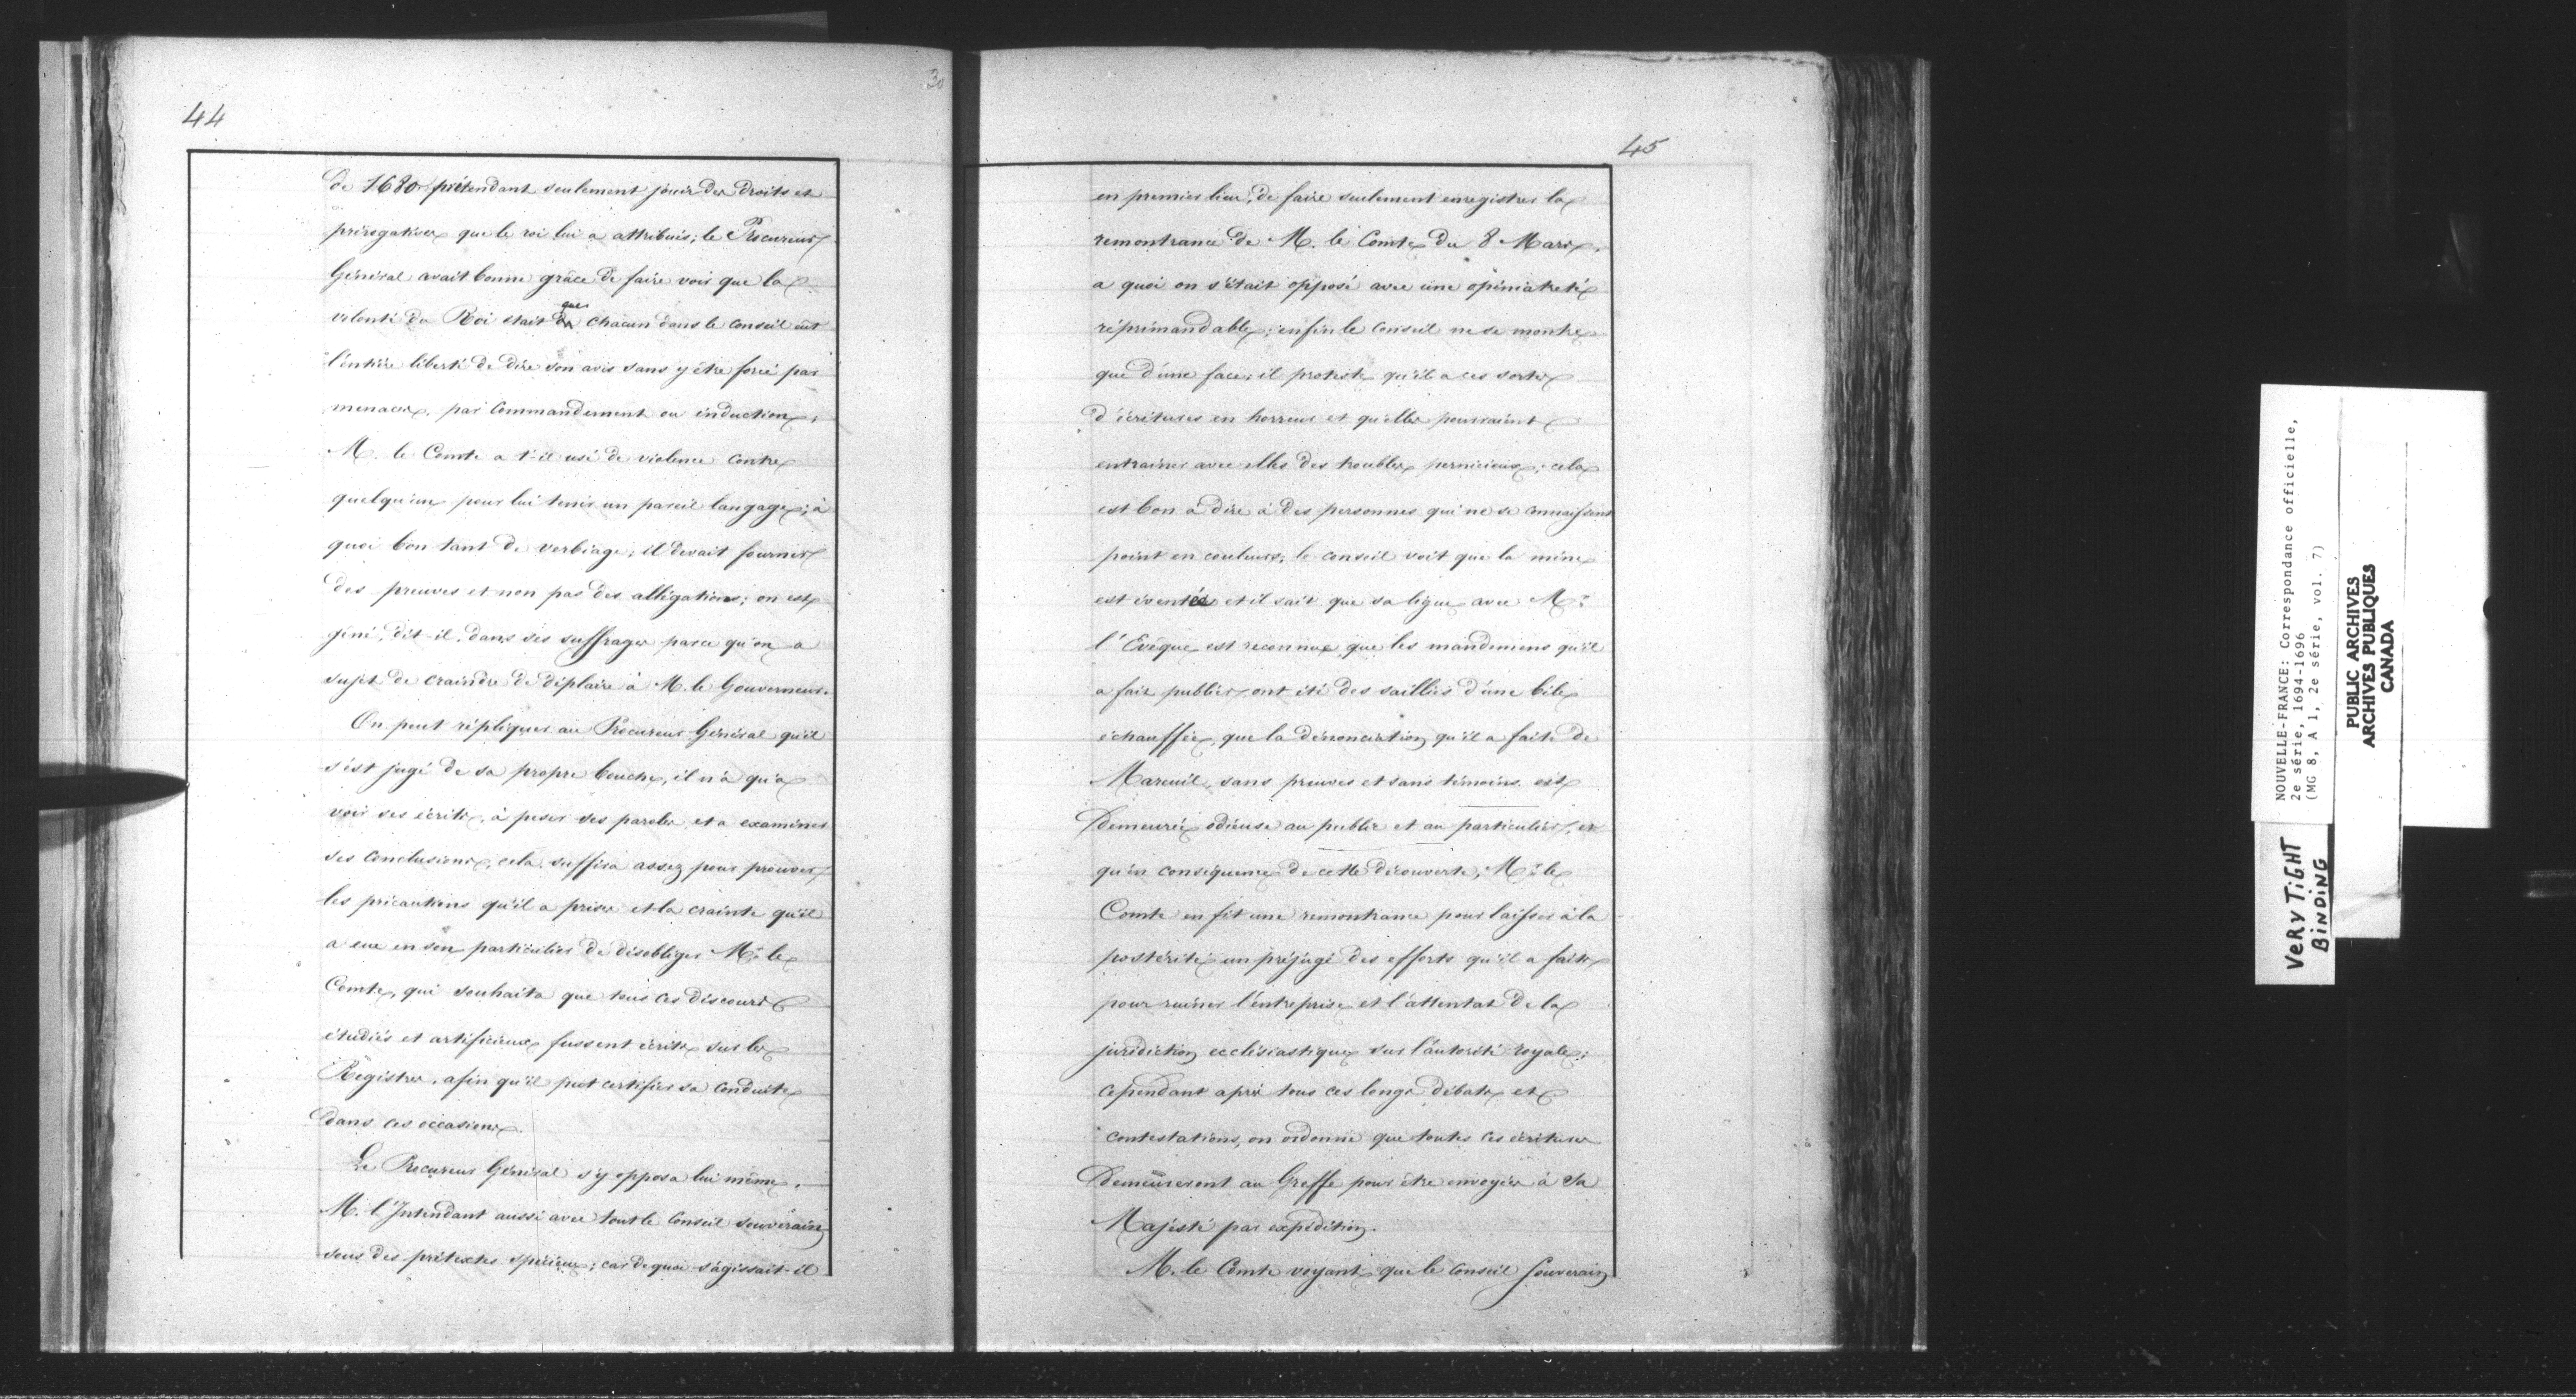 44
30
de 1680 prétendant seulement jouir des droits et
prérogatives que le roi lui a attribués; le Procureur
Général avait bonne grâce de faire voir que la
volonté du Roi était que chacun dans le Conseil eût
l'entière liberté de dire son avis sans y être forcé par
menaces, par commandement ou induction;
M. le Comte a t-il usé de violence contre
quelqu'un pour lui tenir un pareil langage; à
quoi bon tant de verbiage; il devait fournir
des preuves et non pas des allégations; on est
gêné, dit-il, dans ses suffrages parce qu'on a
sujet de craindre de déplaire à M. le Gouverneur.
On peut répliquer au Procureur Général qu'il
s'est jugé de sa propre bouche, il n'a qu'à
voir ses écrits, à peser ses paroles et a examiner
ses conclusions, cela suffira assez pour prouver
les précautions qu'il a prises et la crainte qu'il
a eue en son particulier de désobliger Mr. le
Comte, qui souhaita que tous ces discours
étudiés et artificieux fussent écrits sur les
Registres, afin qu'il put certifier sa conduite
dans ces occasions.
Le Procureur Général s'y opposa lui même,
M. l'Intendant aussi avec tout le Conseil souverain
sous des prétextes spécieux; car de quoi s'agissait-il
45
en premier lieu, de faire seulement enregistrer la
remontrance de M. le Comte du 8 Mars,
a quoi on s'était opposé avec une opiniatreté
réprimandable; enfin le Conseil ne se montre
que d'une face; il proteste qu'il a ces sortes
d'écritures en horreur et qu'elles pourraient
entrainer avec elles des troubles pernicieux; cela
est bon à dire à des personnes qui ne se connaissent
point en couleurs; le conseil voit que la mine
est éventée et il sait que sa ligue avec Mr.
l'Evêque est reconnue, que les mandemens qu'il
a fait publier, ont été des saillies d'une bile
échauffée, que la dénonciation qu'il a faite de
Mareuil, sans preuves et sans témoins est
Demeurée odieuse au public et au particulier, et
qu'en conséquence de cette découverte, Mr. le
Comte en fit une remontrance pour laisser à la
postérité un préjugé des efforts qu'il a faits
pour ruiner l'entreprise et l'attentat de la
juridiction ecclésiastique sur l'autorité royale;
cependant après tous ces longs débats et
contestations, on ordonne que toutes ces écritures
Demeureront au Greffe pour être envoyées à Sa
Majesté par expédition.
M. le Comte voyant que le Conseil Souverain
NOUVELLE-FRANCE: Correspondance officielle,
2e série, 1694-1696
(MG 8, A 1, 2e série, vol. 7)
PUBLIC ARCHIVES
ARCHIVES PUBLIQUES
CANADA
VERY TIGHT
BINDING